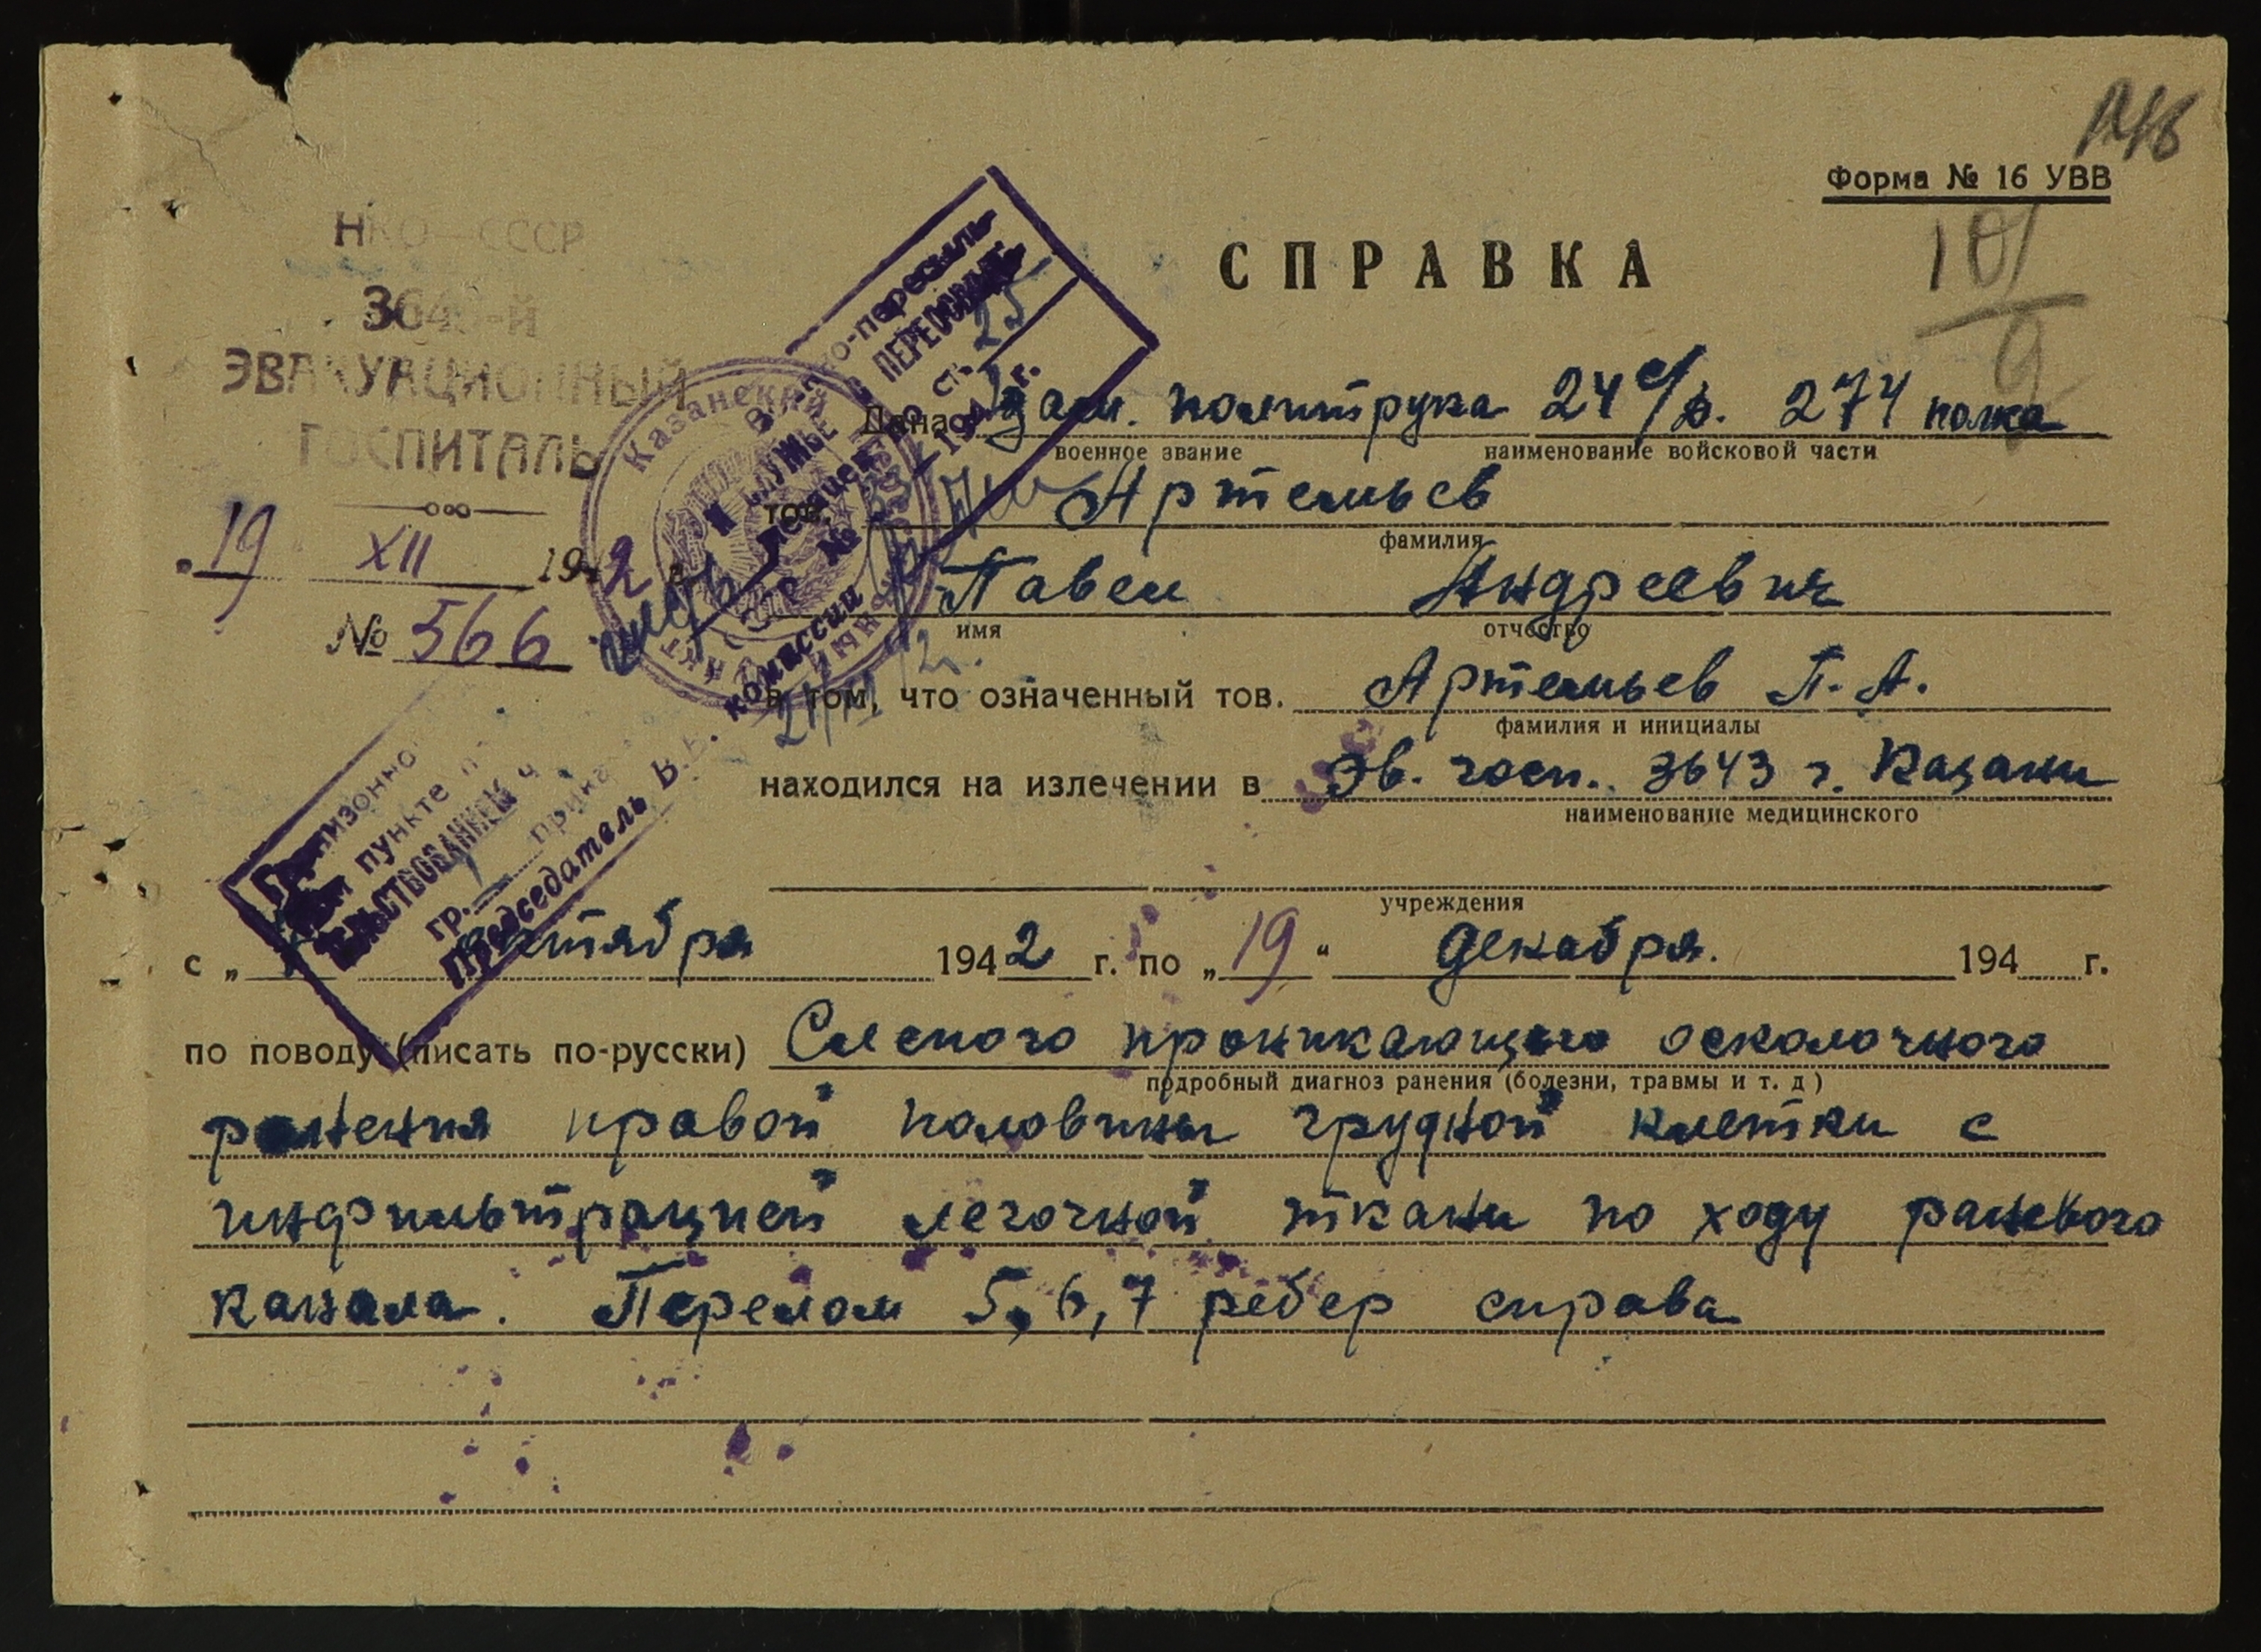 Форма № 16 УВВ
СПРАВКА
НКО—СССР
3643-й
ЭВАКУАЦИОННЫЙ
ГОСПИТАЛЬ
19 XII 1942
№ 566
Дана зам. политрука 24 с/д. 274 полка
военное звание наименование войсковой части
тов. Артемьев
фамилия
Павел Андреевич
имя отчество
в том, что означенный тов. Артемьев П. А.
фамилия и инициалы
находился на излечении в Эв. госп. 3643 г. Казани
наименование медицинского
учреждения
с „ 1942 г. по „19“ декабря. 194 г.
по поводу (писать по-русски) Слепого проникающего осколочного
подробный диагноз ранения (болезни, травмы и т. д)
ранения правой половины грудной клетки с
инфильтрацией легочной ткани по ходу раневого
канала. Перелом 5, 6, 7 ребер справа
Казанский
пункте
гр.
Председатель
комиссии